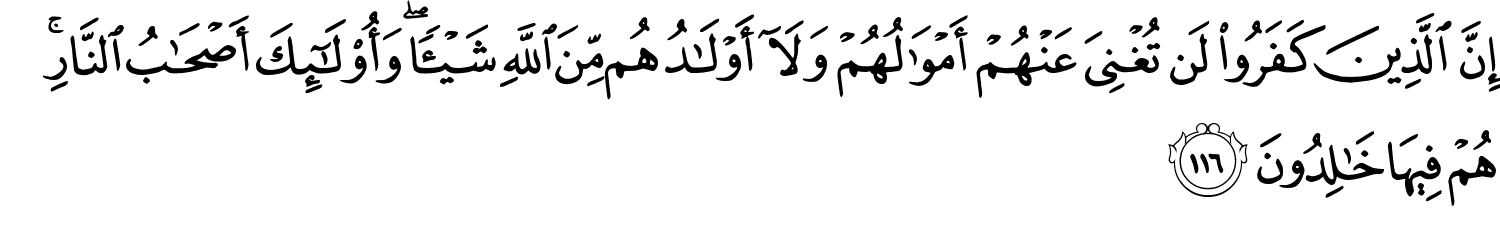 إِنَّ ٱلَّذِينَ كَفَرُوا۟ لَن تُغْنِىَ عَنْهُمْ أَمْوَٰلُهُمْ وَلَآ أَوْلَـٰدُهُم مِّنَ ٱللَّهِ شَيْـًٔا ۖ وَأُو۟لَـٰٓئِكَ أَصْحَـٰبُ ٱلنَّارِ ۚ
هُمْ فِيهَا خَـٰلِدُونَ ١١٦